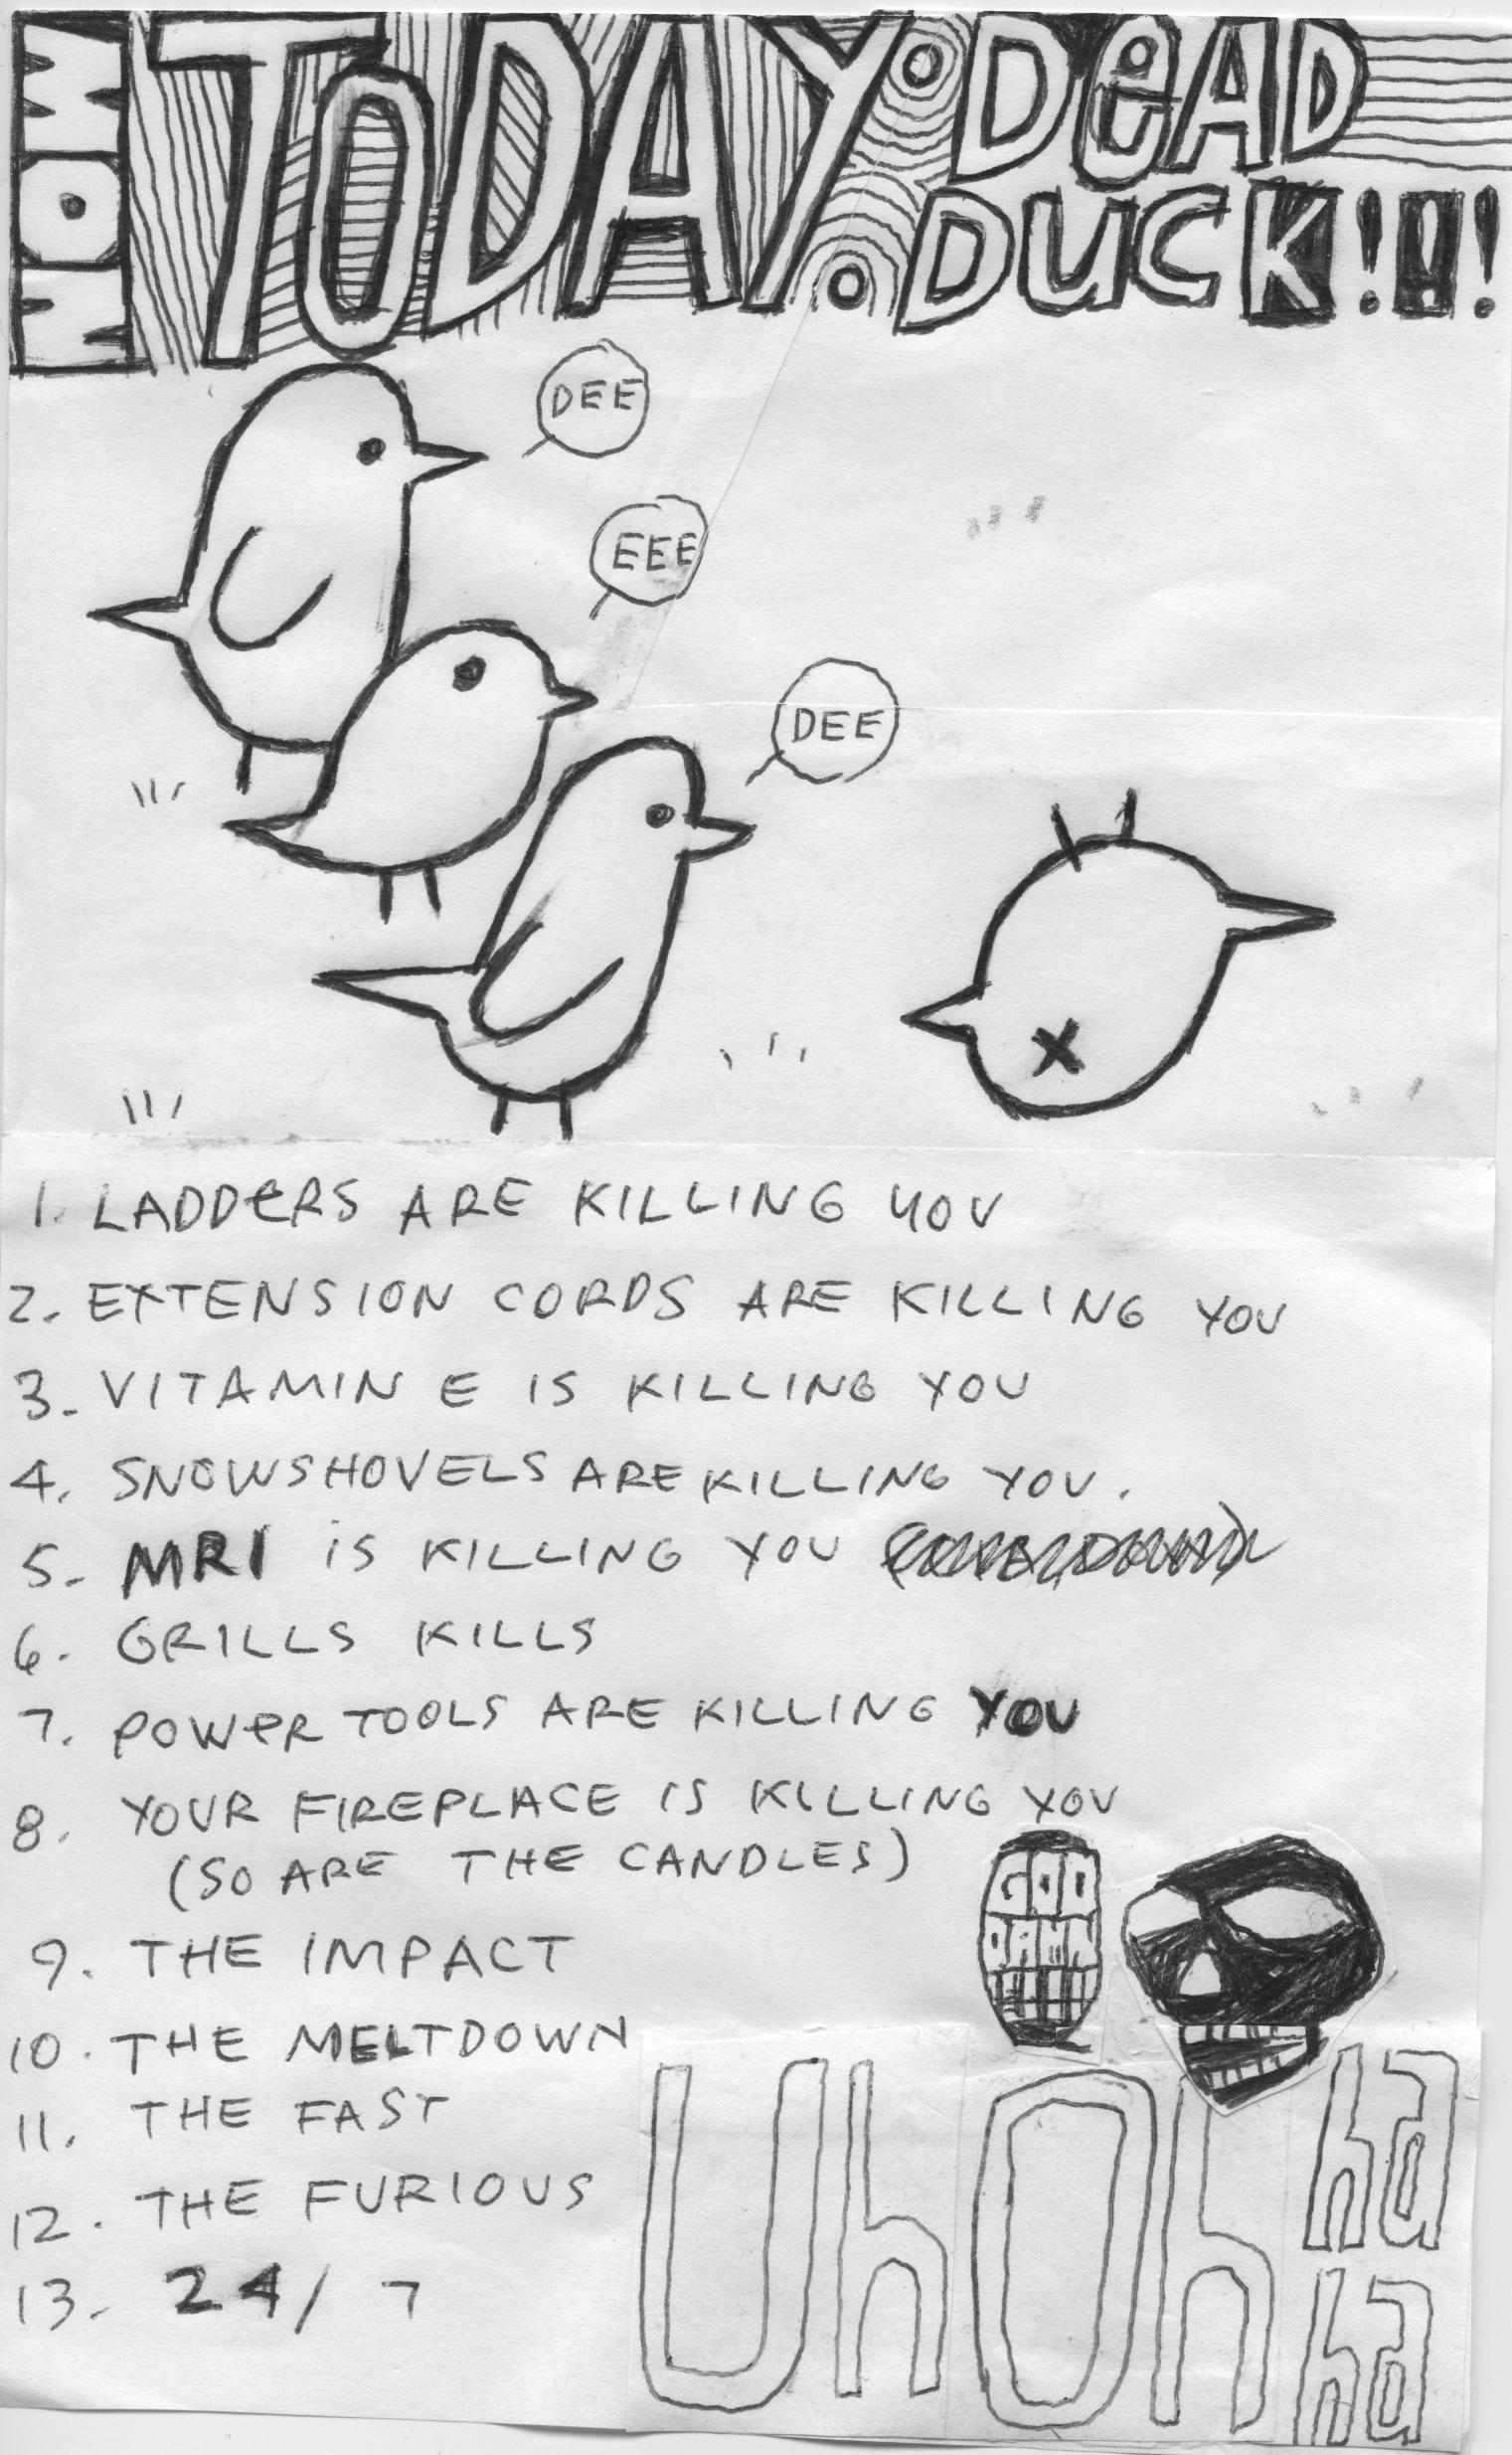 MOM
TODAY
DeAD
DUCK!!!
DEE
EEE
DEE
1. LADDeRS ARE KILLING YOU
2. EXTENSION CORDS ARE KILLING YOU
3. VITAMIN E IS KILLING YOU
4. SNOWSHOVELS ARE KILLING YOU.
5. MRI iS KILLING YOU
6. GRILLS KILLS
7. POWeR TOOLS ARE KILLING YOU
8. YOUR FIREPLACE IS KILLING YOU
(SO ARE THE CANDLES)
9. THE IMPACT
10. THE MELTDOWN
11. THE FAST
12. THE FURIOUS
13. 24/7
GOD
DAMN
UhOh
ha
ha